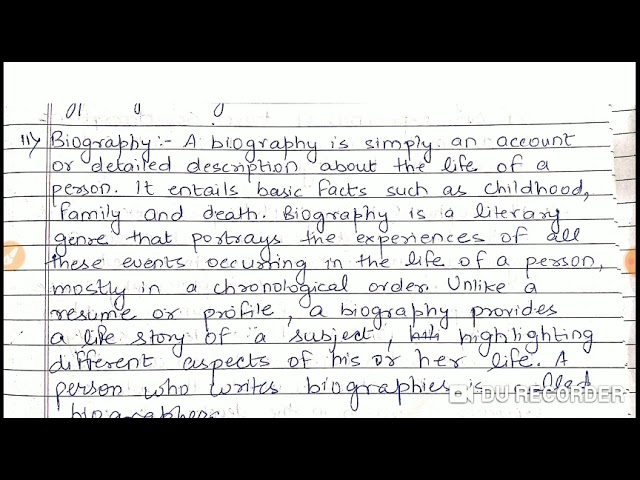 111) Biography :- A biography is simply an account
or detailed description about the life of a
person. It entails basic facts such as childhood,
family and death. Biography is a literary
genre that portrays the experiences of all
these events occurring in the life of a person,
mostly in a chronological order. Unlike a
resume or profile, a biography provides
a life story of a subject, highlighting
different aspects of his or her life. A
person who writes biographies is called
biographers
DU RECORDER